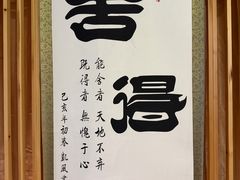 舍得
能舍者 天地不弃
既得者 無愧于心
己亥年初春 凱風書